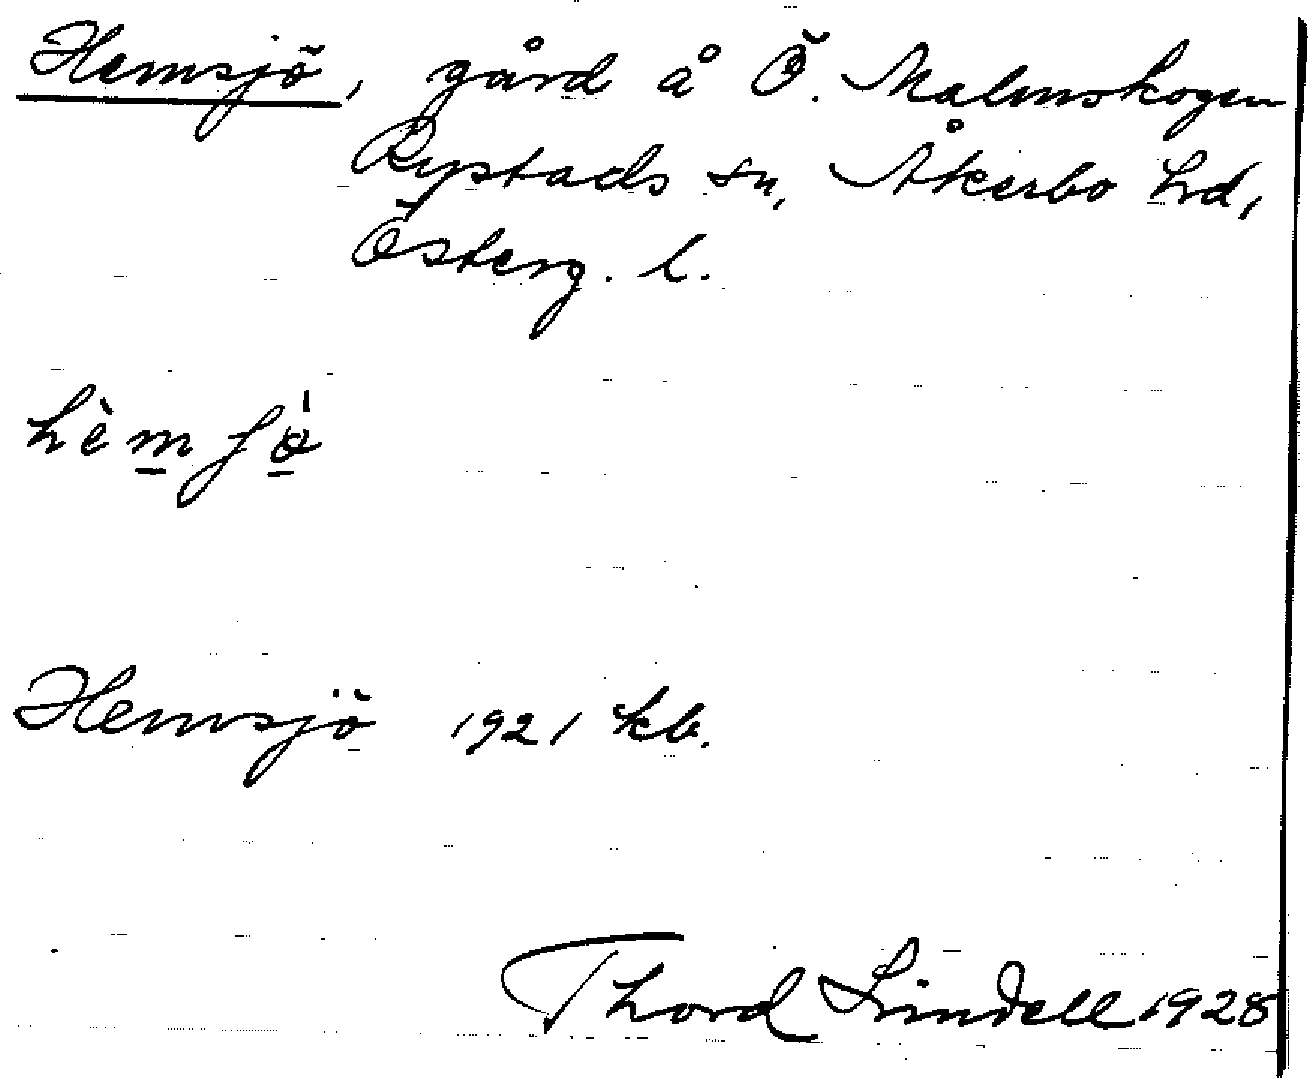 Hemsjö, gård å Ö. Malmskogen
Rystads sn, Åkerbo hd,
Österg. l.
hèmʃö̀
Hemsjö 1921 kb.
Thord Lindell 1928